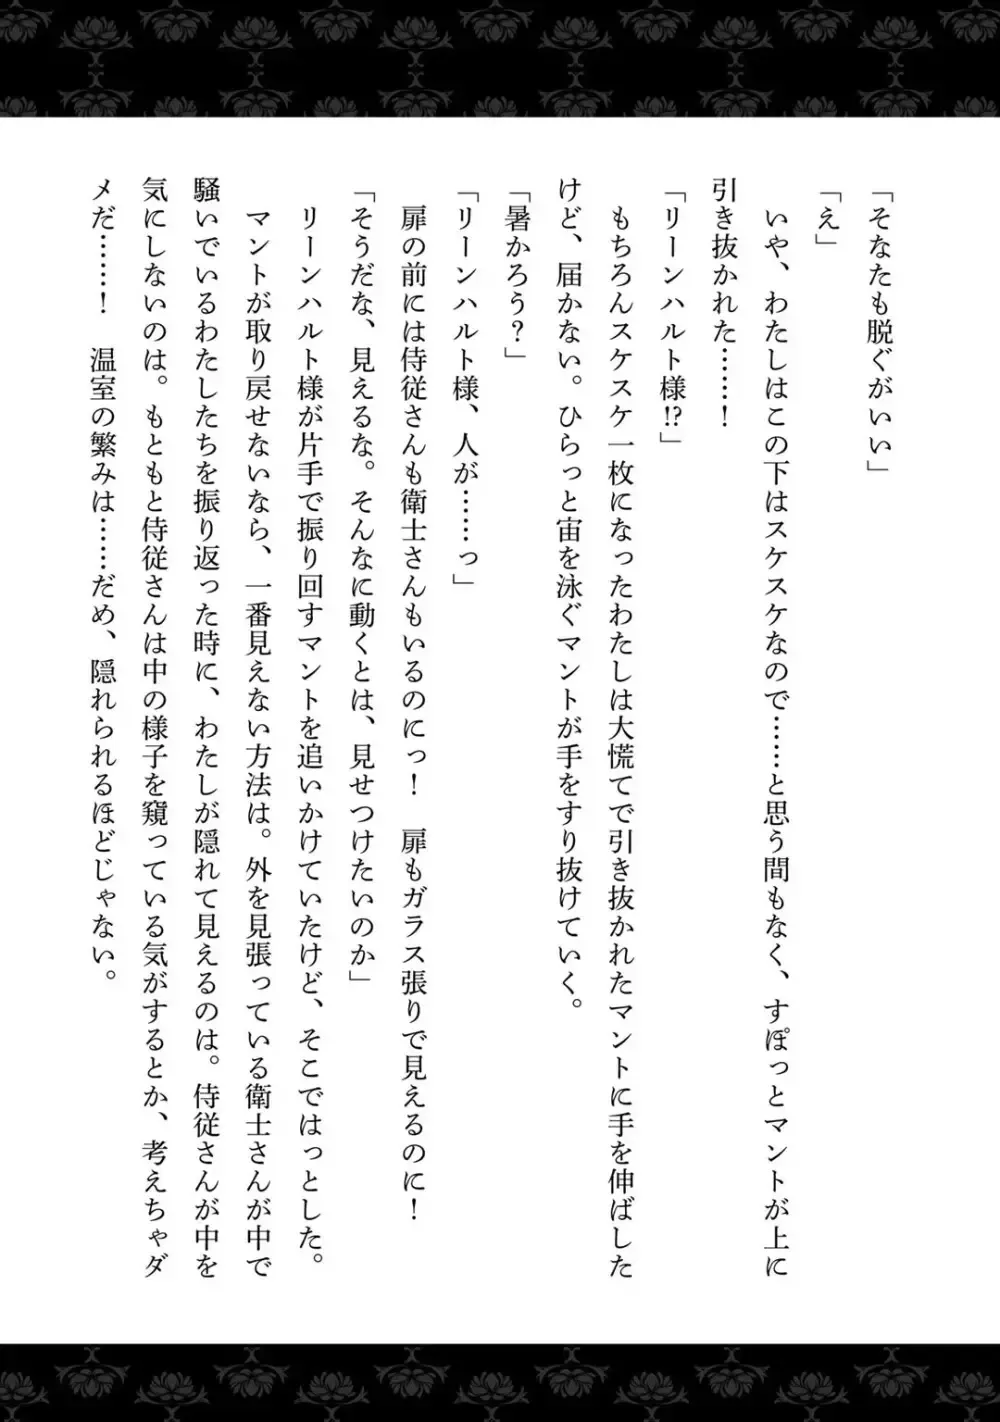 「そなたも脱ぐがいい」
「え」
　いや、わたしはこの下はスケスケなので……と思う間もなく、すぽっとマントが上に
引き抜かれた……！
「リーンハルト様!?」
　もちろんスケスケ一枚になったわたしは大慌てで引き抜かれたマントに手を伸ばした
けど、届かない。ひらっと宙を泳ぐマントが手をすり抜けていく。
「暑かろう？」
「リーンハルト様、人が……っ」
　扉の前には侍従さんも衛士さんもいるのにっ！　扉もガラス張りで見えるのに！
「そうだな、見えるな。そんなに動くとは、見せつけたいのか」
　リーンハルト様が片手で振り回すマントを追いかけていたけど、そこではっとした。
　マントが取り戻せないなら、一番見えない方法は。外を見張っている衛士さんが中で
騒いでいるわたしたちを振り返った時に、わたしが隠れて見えるのは。侍従さんが中を
気にしないのは。もともと侍従さんは中の様子を窺っている気がするとか、考えちゃダ
メだ……！　温室の繁みは……だめ、隠れられるほどじゃない。